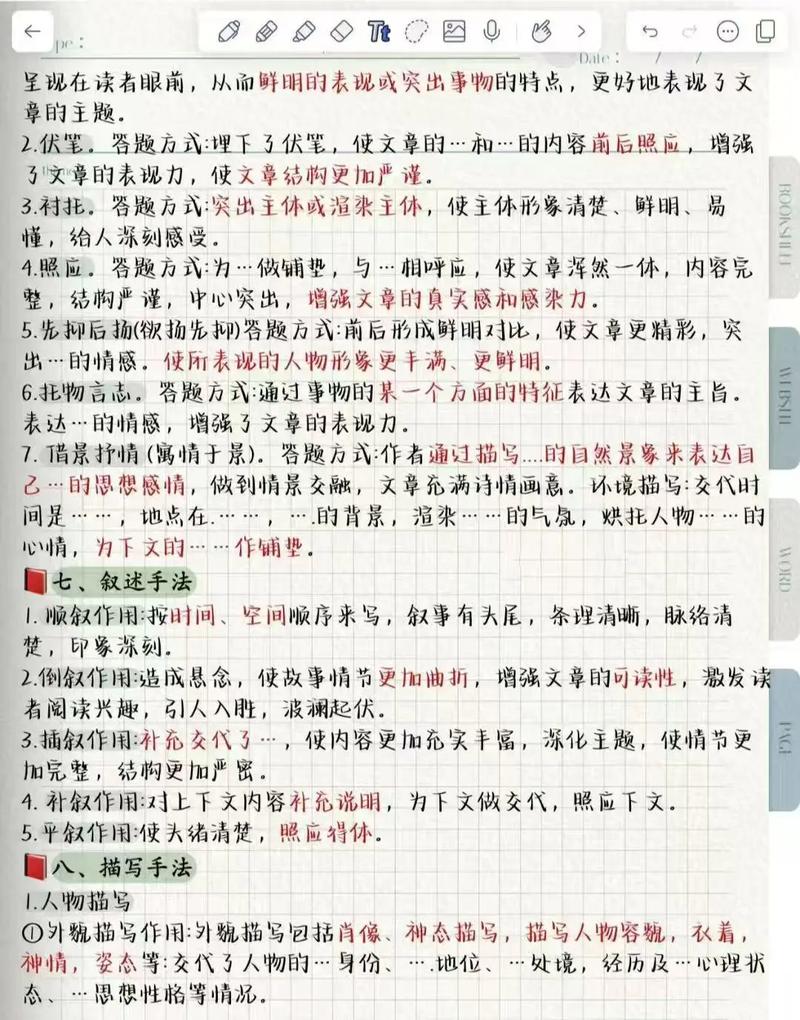 pe：
Tt
Date： / /
呈现在读者眼前，从而鲜明的表现或突出事物的特点，更好地表现了文
章的主题。
2.伏笔。答题方式:埋下了伏笔，使文章的…和…的内容前后照应，增强
了文章的表现力，使文章结构更加严谨。
3.衬托。答题方式:突出主体或渲染主体，使主体形象清楚、鲜明、易
懂，给人深刻感受。
4.照应。答题方式:为…做铺垫，与…相呼应，使文章浑然一体，内容完
整，结构严谨，中心突出，增强文章的真实感和感染力。
5.先抑后扬(欲扬先抑)答题方式:前后形成鲜明对比，使文章更精彩，突
出…的情感。使所表现的人物形象更丰满、更鲜明。
6.托物言志。答题方式:通过事物的某一个方面的特征表达文章的主旨。
表达…的情感，增强了文章的表现力。
7. 借景抒情(寓情于景)。答题方式:作者通过描写....的自然景象来表达自
己…的思想感情，做到情景交融，文章充满诗情画意。环境描写:交代时
间是……，地点在.……，….的背景，渲染……的气氛，烘托人物……的
心情，为下文的……作铺垫。
七、叙述手法
1. 顺叙作用:按时间、空间顺序来写，叙事有头尾，条理清晰，脉络清
楚，印象深刻。
2.倒叙作用:造成悬念，使故事情节更加曲折，增强文章的可读性，激发读
者阅读兴趣，引人入胜，波澜起伏。
3.插叙作用:补充交代了…，使内容更加充实丰富，深化主题，使情节更
加完整，结构更加严密。
4. 补叙作用:对上下文内容补充说明，为下文做交代，照应下文。
5.平叙作用:使头绪清楚，照应得体。
八、描写手法
1.人物描写
①外貌描写作用:外貌描写包括肖像、神态描写，描写人物容貌，衣着，
神情，姿态等:交代了人物的…身份、….地位、…处境，经历及…心理状
态、…思想性格等情况。
BOOKSHELF
WEBSITE
WORD
PAGE